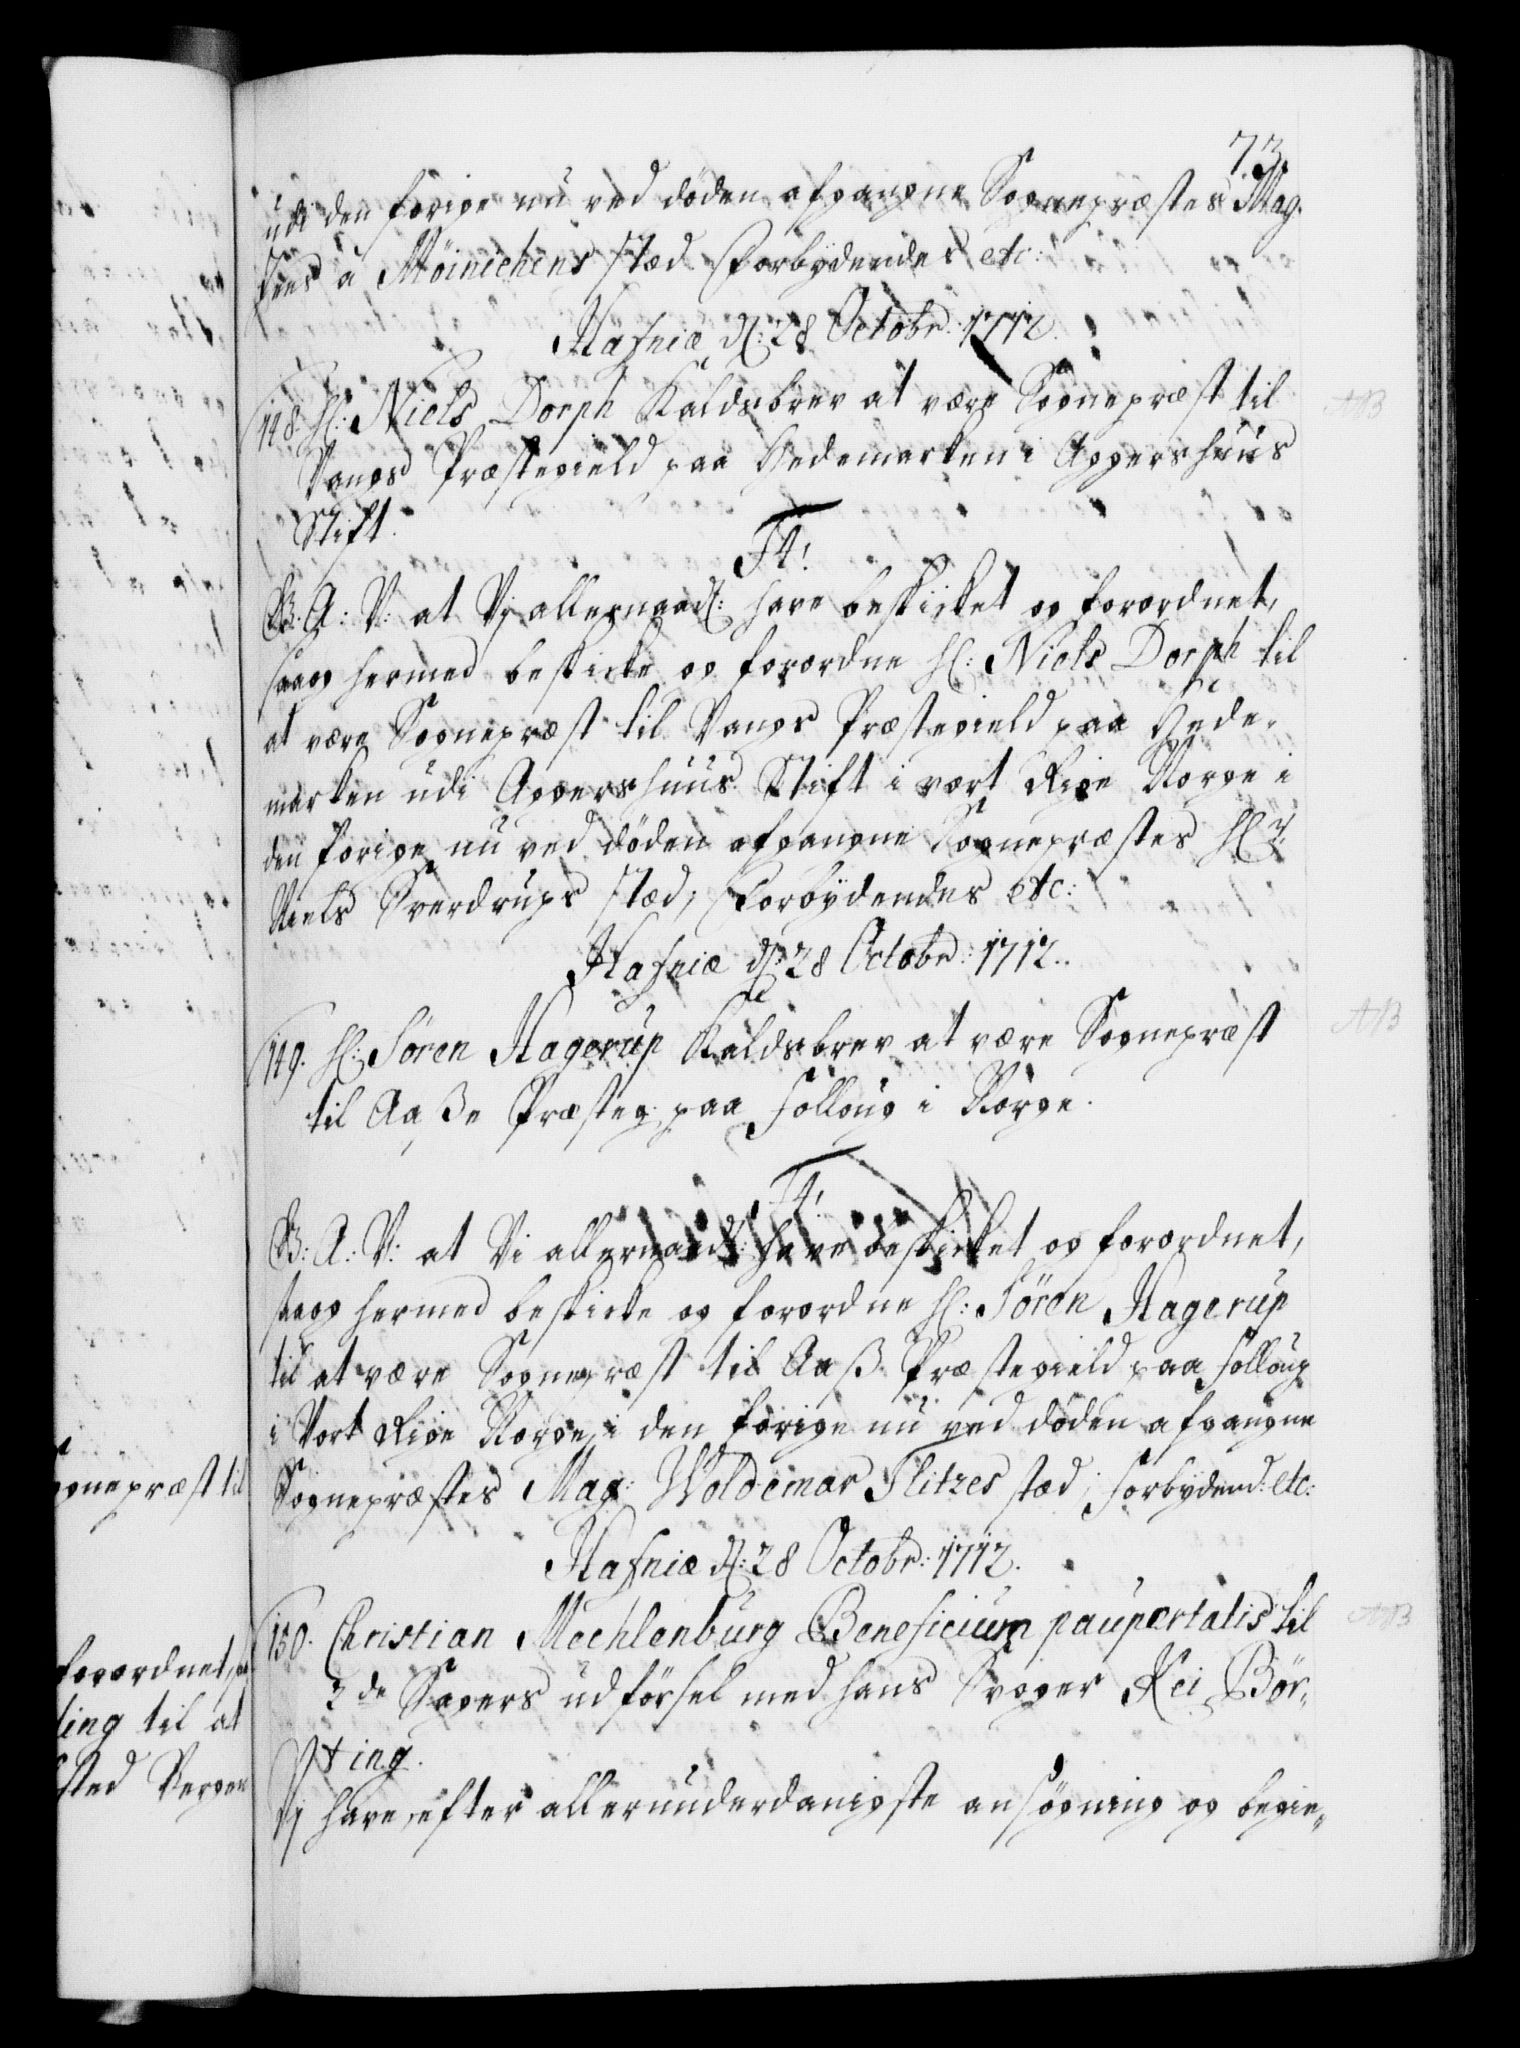 73.
udi den forige nu ved döden afgangne Sognepræstes Mag.
Jens à Möinichens stæd forbydendes etc:
Hafniæ d: 28 Octobr: 1712.
148. Hl: Niels Dorph Kaldsbrev at være Sognepræst til
Vangs Præstegield paa Hedemarken i Aggershuus
Stift.
F4!
G: A: V: at Vj allernaadl: have beskicket og forordnet,
saa og hermed beskicke og forordne Hl: Niels Dorph til
at være Sognepræst til Vangs Præstegield paa Hede-
marken udi Aggershuus Stift i vort Rige Norge i
den forige nu ved döden afgangne Sognepræstes Hl:
Niels Sverdrups stæd, forbydendes etc:
Hafniæ d: 28 Octobr: 1712.
149. Hl: Sören Hagerup Kaldsbrev at være Sognepræst
til Aaße Præsteg: paa Folloug i Norge.
F4!
G: A: V: at Vi allernaadl: have beskicket og forordnet,
saa og hermed beskicke og forordne Hl: Sören Hagerup
til at være Sognepræst til Aaß Præstegield paa Folloug
i Vort Rige Norge, i den forige nu ved döden afgangne
Sognepræstes Mag: Woldemar Flitzes stæd; Forbydend: etc:
Hafniæ d: 28 Octobr: 1712.
150. Christian Mechlenburg Beneficium paupertatis til
2de Sagers udförsel med hans Svoger Kei Bör„
ting.
Vj have, efter allerunderdanigste ansögning og begie„
AB
AB
AB
gnepræst til
forordnet,
ting til at
sted Bergen